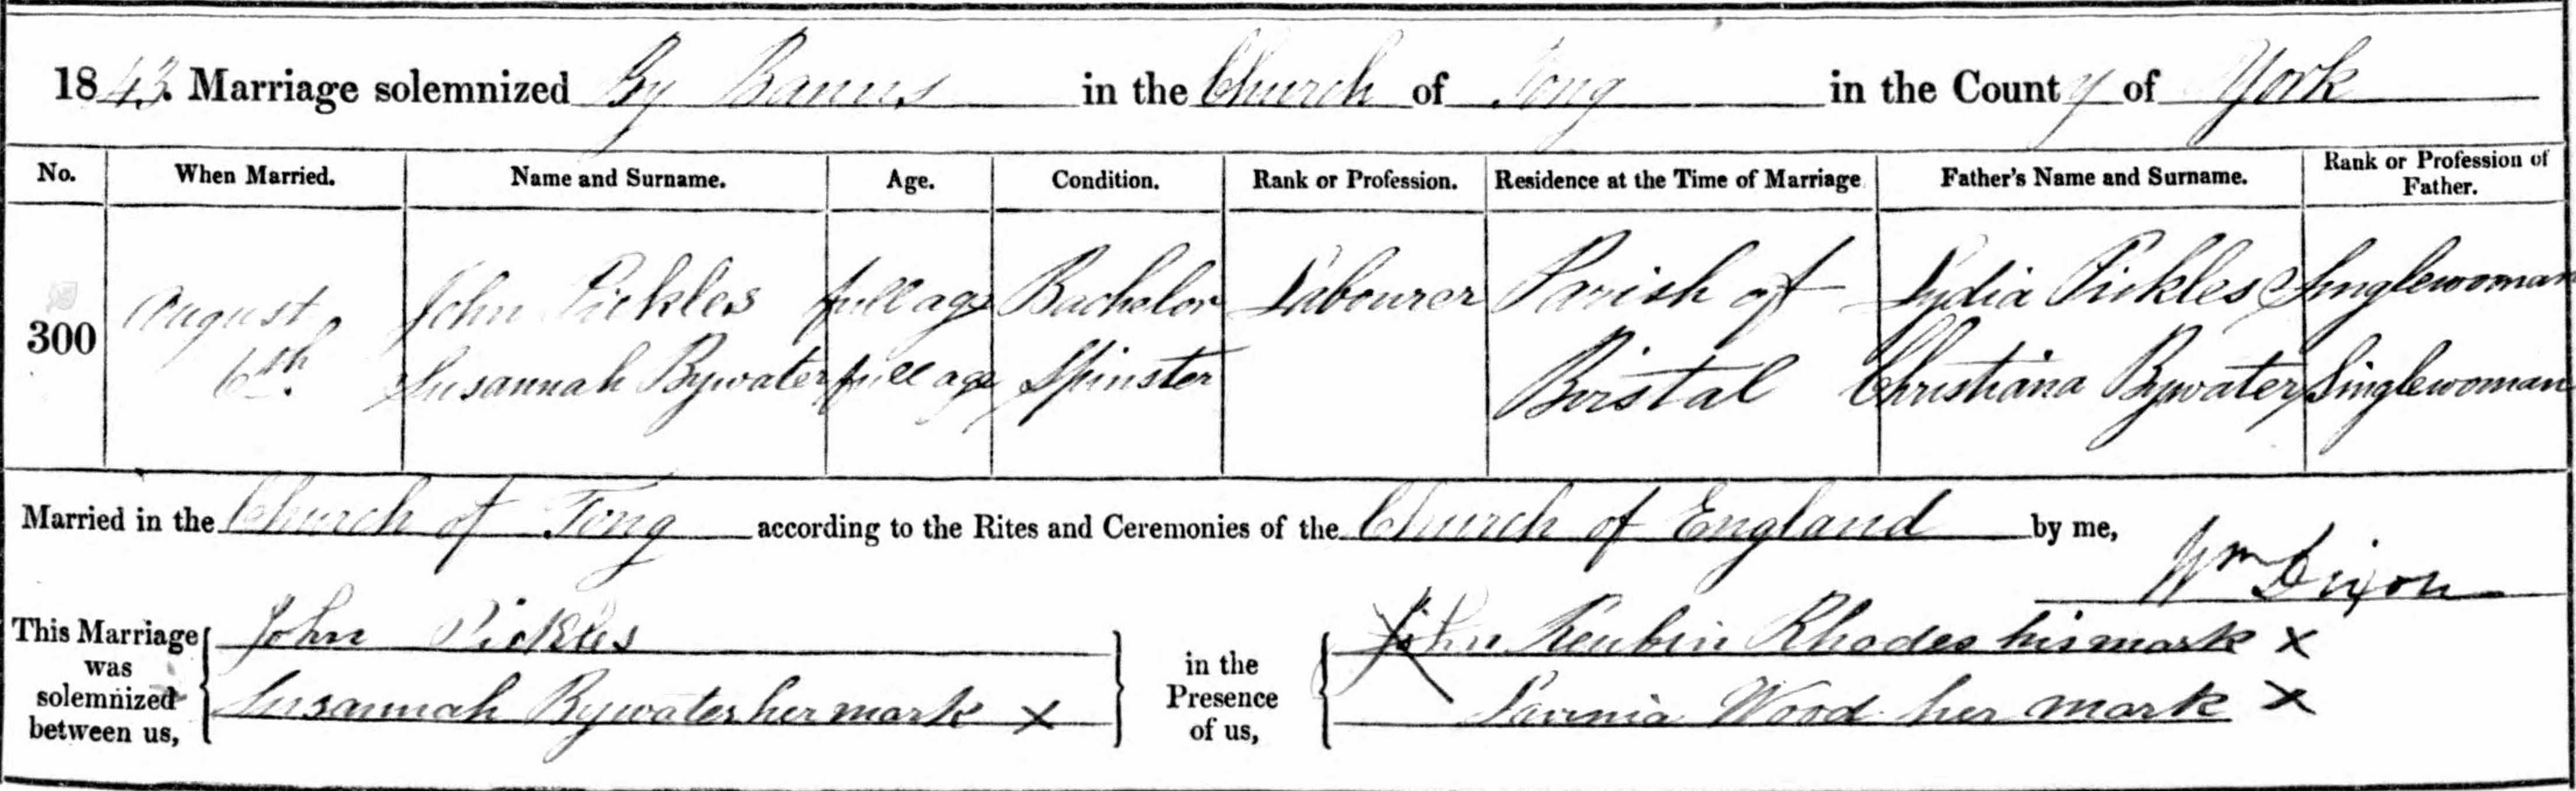 1843. Marriage solemnized By Banns in the Church of Tong in the County of York
No. When Married. Name and Surname. Age. Condition. Rank or Profession. Residence at the Time of Marriage Father's Name and Surname. Rank or Profession of Father.
300 August 6th. John Pickles full age Bachelor Labourer Parish of Lydia Pickles Singlewoman
Susannah Bywater full age Spinster Birstal Christiana Bywater Singlewoman
Married in the Church of Tong according to the Rites and Ceremonies of the Church of England by me, Wm Dixon
This Marriage was solemnized between us, John Pickles
Susannah Bywater her mark x
in the Presence of us, John Reubin Rhodes his mark x
Lavinia Wood her mark x